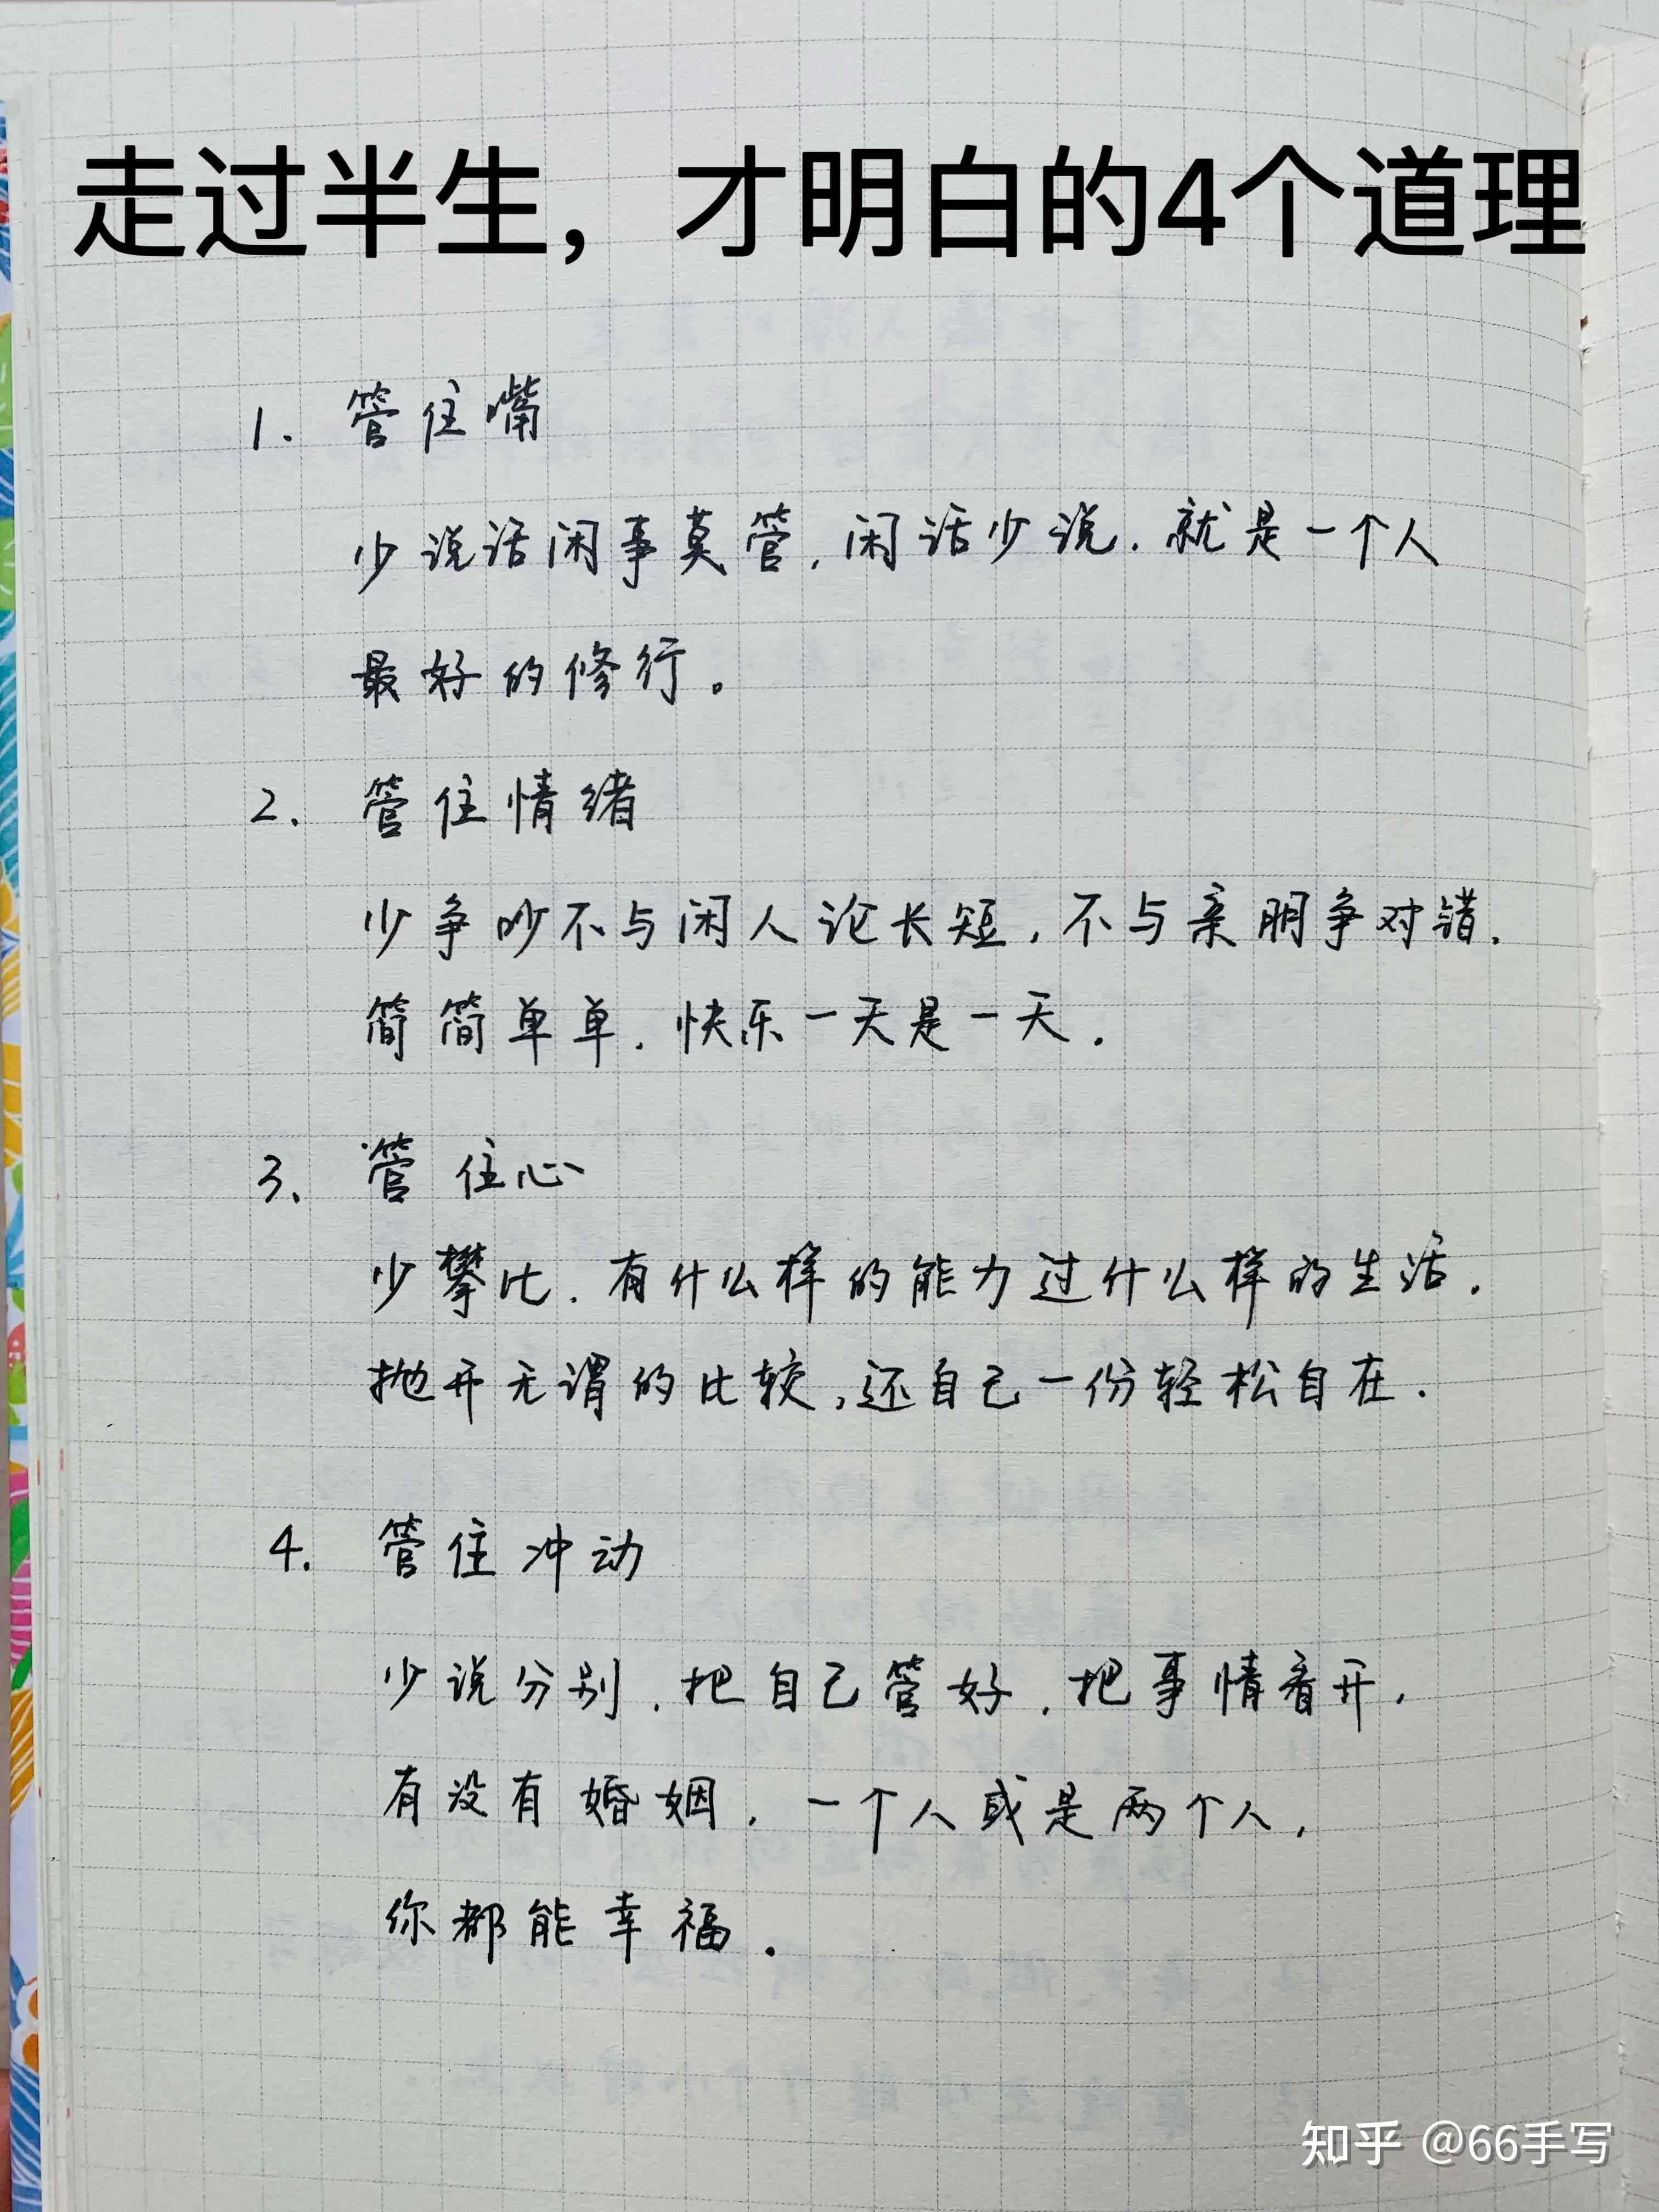 走过半生，才明白的4个道理
1. 管住嘴
少说话闲事莫管，闲话少说．就是一个人
最好的修行。
2. 管住情绪
少争吵不与闲人论长短，不与亲朋争对错．
简简单单．快乐一天是一天．
3、管住心
少攀比．有什么样的能力过什么样的生活．
抛开无谓的比较，还自己一份轻松自在．
4. 管住冲动
少说分别．把自己管好．把事情看开，
有没有婚姻．一个人或是两个人，
你都能幸福．
知乎 @66手写